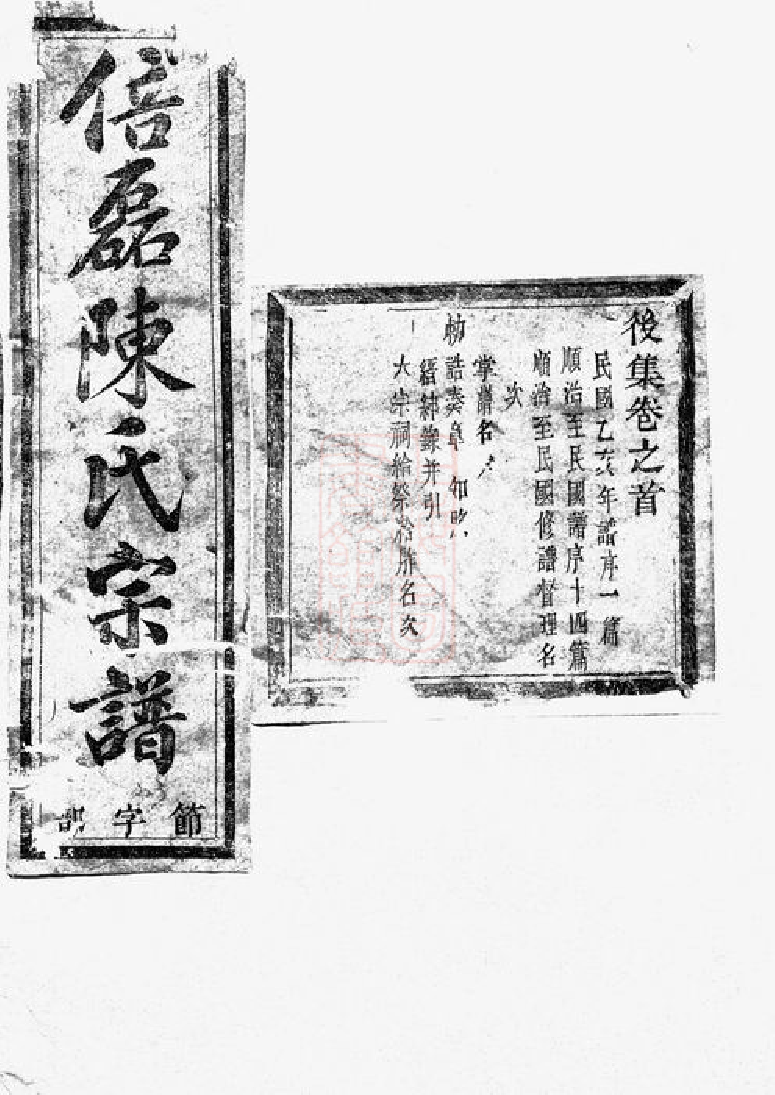 倍磊陳氏宗譜
節字
後集卷之首
民國乙亥年譜序一篇
順治至民國譜序十四篇
順治至民國修譜督理名
次
掌譜名
勅誥奏章
縉紳錄并引
大宗祠給祭給胙名次